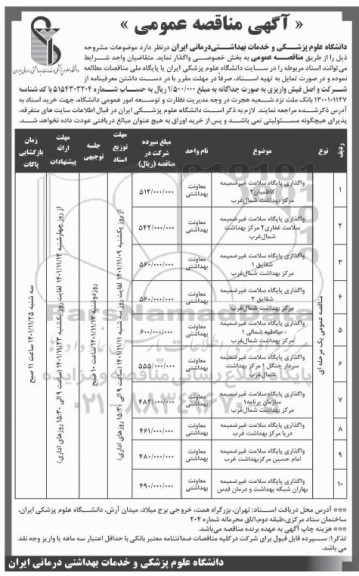 « آگهی مناقصه عمومی »
دانشگاه علوم پزشکی و خدمات بهداشتی درمانی ایران در نظر دارد موضوعات مشروحه
ذیل را از طریق مناقصه عمومی به بخش خصوصی واگذار نماید. متقاضیان واجد شرایط
می توانند اسناد مربوطه را در سایت دانشگاه علوم پزشکی ایران یا پایگاه ملی مناقصات مطالعه
نموده و در صورت تمایل به تهیه اسناد، صرفاً در مهلت مقرر با در دست داشتن معرفینامه از
شرکت و اصل فیش واریزی به صورت جداگانه به مبلغ ۱/۵۰۰/۰۰۰ ریال به حساب شماره
بانک ملت نزد شعبه هجرت در وجه مدیریت نظارت و توسعه امور عمومی دانشگاه، جهت خرید اسناد به
آدرس ذکر شده مراجعه نمایند. لازم به ذکر است دانشگاه علوم پزشکی ایران در قبال اطلاعات سایت های متفرقه،
پذیرای هیچگونه مسئولیتی نمی باشد و پس از خرید اوراق به هیچ عنوان مبالغ دریافتی عودت داده نخواهد شد.
ردیف
نوع
موضوع
نام واحد
مبلغ سپرده شرکت در مناقصه (ریال)
مهلت توزیع اسناد
جلسه توجیهی
مهلت ارائه پیشنهادات
زمان بازگشایی پاکات
مناقصه عمومی یک مرحله ای
۱ واگذاری پایگاه سلامت غیرضمیمه کاظمیان ۲ مرکز بهداشت شمال غرب معاونت بهداشتی ۵۱۲/۰۰۰/۰۰۰
۲ واگذاری پایگاه سلامت غیرضمیمه سلامت غفاری ۲ مرکز بهداشت شمال غرب معاونت بهداشتی ۵۴۲/۰۰۰/۰۰۰
۳ واگذاری پایگاه سلامت غیرضمیمه شقایق ۱ مرکز بهداشت شمال غرب معاونت بهداشتی ۵۶۰/۰۰۰/۰۰۰
۴ واگذاری پایگاه سلامت غیرضمیمه شقایق ۲ مرکز بهداشت شمال غرب معاونت بهداشتی ۵۶۰/۰۰۰/۰۰۰
۵ واگذاری پایگاه سلامت غیرضمیمه مرکز بهداشت شمال غرب معاونت بهداشتی ۶۰۰/۰۰۰/۰۰۰
۶ واگذاری پایگاه سلامت غیرضمیمه سردار جنگل ۱ مرکز بهداشت شمال غرب معاونت بهداشتی ۵۵۵/۰۰۰/۰۰۰
۷ واگذاری پایگاه سلامت غیرضمیمه سازمان برنامه ۱ مرکز بهداشت شمال غرب معاونت بهداشتی ۴۸۲/۰۰۰/۰۰۰
۸ واگذاری پایگاه سلامت غیرضمیمه دریا مرکز بهداشت غرب معاونت بهداشتی ۴۶۱/۰۰۰/۰۰۰
۹ واگذاری پایگاه سلامت غیرضمیمه امام حسین مرکز بهداشت غرب معاونت بهداشتی ۴۸۰/۰۰۰/۰۰۰
۱۰ واگذاری پایگاه سلامت غیرضمیمه بهاران شبکه بهداشت و درمان قدس معاونت بهداشتی ۴۹۰/۰۰۰/۰۰۰
از روز یکشنبه ۱۴۰۱/۱۱/۰۹ لغایت روز سه شنبه ۱۴۰۱/۱۱/۱۱ (ساعت ۹ الی ۱۵:۳۰ روزهای اداری)
روز دوشنبه ساعت ۱۰ صبح
از روز چهارشنبه ۱۴۰۱/۱۱/۱۲ لغایت روز یکشنبه ۱۴۰۱/۱۱/۲۳ (ساعت ۹ الی ۱۵:۳۰ روزهای اداری)
سه شنبه ۱۴۰۱/۱۱/۲۵ ساعت ۱۱ صبح
ParsNamadData
پایگاه اطلاع رسانی مناقصه و مزایده
۰۲۱-۸۸۳۴۹۶۷۰
*** آدرس محل دریافت اسناد: تهران، بزرگراه همت، خروجی برج میلاد، میدان آرش، دانشگاه علوم پزشکی ایران،
ساختمان ستاد مرکزی، طبقه دوم، اتاق محرمانه شماره ۲۰۴
*** هزینه چاپ آگهی به عهده برنده مناقصه می باشد.
تذکر ۱: سپرده قابل قبول برای شرکت در کلیه مناقصات ضمانتنامه معتبر بانکی با حداقل اعتبار سه ماهه یا واریز وجه نقد
می باشد.
دانشگاه علوم پزشکی و خدمات بهداشتی درمانی ایران